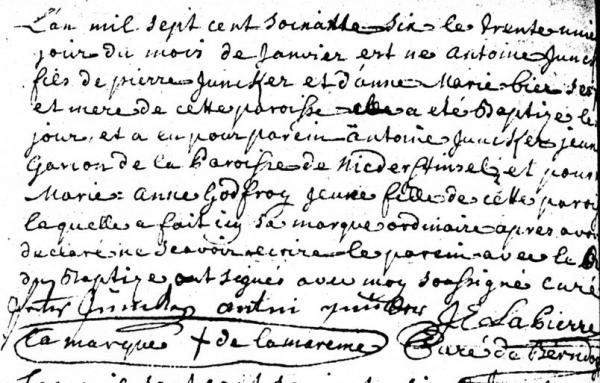 L'an mil sept cent soixatte six le trente unie
jour du mois de Janvier est ne Antoine Junck
fils de pierre Juncker et d'anne Marie bier ses
et mere de cette paroisse a eté Baptize le
jour, et a eu pour parein Antoine Juncker jeun
Garson de la Paroisse de et pour
Marie Anne Godfroy jeune fille de cette paroi
laquelle a fait icy sa marque ordinaire apres avoi
declaré ne scavoir ecrire le parein avec le
du Baptize ont signés avec moy soussigné curé
antoni J E Lapierre
la marque + de la mareine Curé de